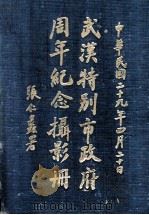 中華民國二十九年四月二十日
武漢特別市政府
周年紀念攝影冊
張仁蠡署